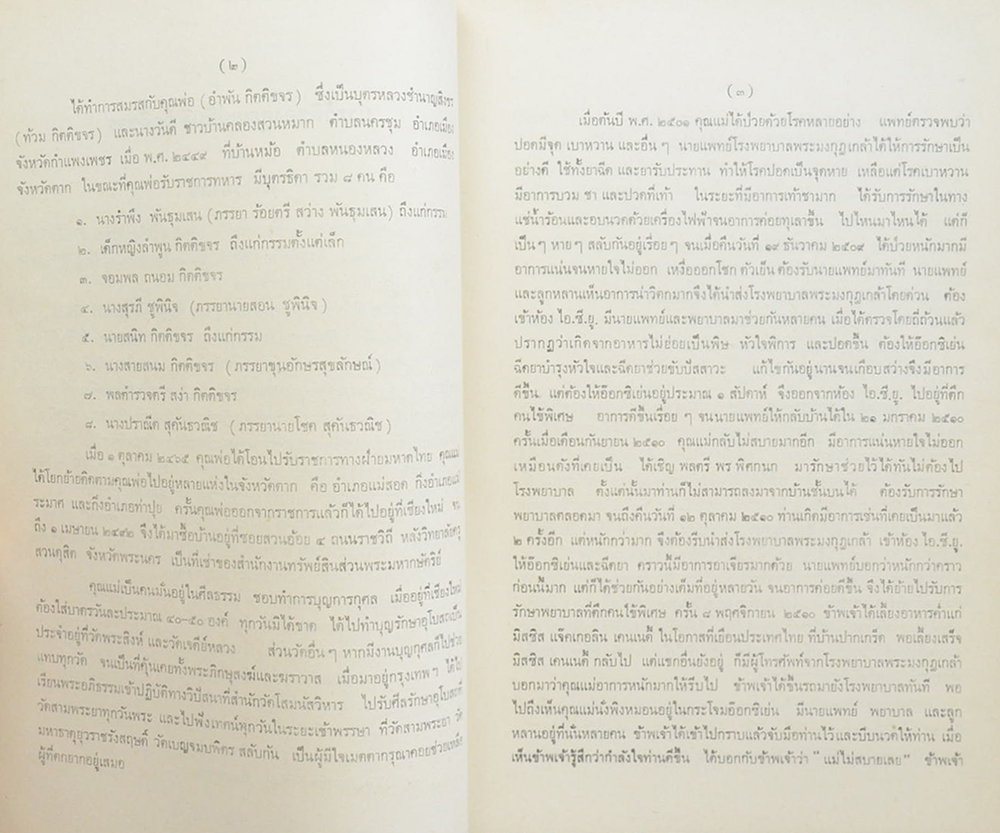 (๒)
ได้ทำการสมรสกับคุณพ่อ (อำพัน กิตติขจร) ซึ่งเป็นบุตรหลวงชำนาญสิงขร
(ท้วม กิตติขจร) และนางวันดี ชาวบ้านคลองสวนหมาก ตำบลนครชุม อำเภอเมือง
จังหวัดกำแพงเพชร เมื่อ พ.ศ. ๒๔๔๙ ที่บ้านหม้อ ตำบลหนองหลวง อำเภอเมือง
จังหวัดตาก ในขณะที่คุณพ่อรับราชการทหาร มีบุตรธิดา รวม ๘ คน คือ
๑. นางรำพึง พันธุมเสน (ภรรยา ร้อยตรี สว่าง พันธุมเสน) ถึงแก่กรรม
๒. เด็กหญิงลำพูน กิตติขจร ถึงแก่กรรมตั้งแต่เล็ก
๓. จอมพล ถนอม กิตติขจร
๔. นางสุรภี ชูพินิจ (ภรรยานายสอน ชูพินิจ)
๕. นายสนิท กิตติขจร ถึงแก่กรรม
๖. นางสายสนม กิตติขจร (ภรรยาขุนอักษรสุขลักษณ์)
๗. พลตำรวจตรี สง่า กิตติขจร
๘. นางปราณีต สุคันธวณิช (ภรรยานายโชค สุคันธวณิช)
เมื่อ ๑ ตุลาคม ๒๔๖๕ คุณพ่อได้โอนไปรับราชการทางฝ่ายมหาดไทย คุณแม่
ได้โยกย้ายติดตามคุณพ่อไปอยู่หลายแห่งในจังหวัดตาก คือ อำเภอแม่สอด กิ่งอำเภอแม่
ระมาด และกิ่งอำเภอท่าปุย ครั้นคุณพ่อออกจากราชการแล้วก็ได้ไปอยู่ที่เชียงใหม่ จน
ถึง ๑ เมษายน ๒๔๙๒ จึงได้มาซื้อบ้านอยู่ที่ซอยสวนอ้อย ๔ ถนนราชวิถี หลังวิทยาลัยครู
สวนดุสิต จังหวัดพระนคร เป็นที่เช่าของสำนักงานทรัพย์สินส่วนพระมหากษัตริย์
คุณแม่เป็นคนมั่นอยู่ในศีลธรรม ชอบทำการบุญการกุศล เมื่ออยู่ที่เชียงใหม่
ต้องใส่บาตรวันละประมาณ ๔๐-๕๐ องค์ ทุกวันมิได้ขาด ได้ไปทำบุญรักษาอุโบสถเป็น
ประจำอยู่ที่วัดพระสิงห์ และวัดเจดีย์หลวง ส่วนวัดอื่นๆ หากมีงานบุญกุศลก็ไปช่วย
แทบทุกวัด จนเป็นที่คุ้นเคยทั้งพระภิกษุสงฆ์และฆราวาส เมื่อมาอยู่กรุงเทพฯ ได้ไป
เรียนพระอภิธรรมเข้าปฏิบัติทางวิปัสนาที่สำนักวัดโสมนัสวิหาร ไปรับศีลรักษาอุโบสถที่
วัดสามพระยาทุกวันพระ และไปฟังเทศน์ทุกวันในระยะเข้าพรรษา ที่วัดสามพระยา วัด
มหาธาตุยุวราชรังสฤษดิ์ วัดเบญจมบพิตร สลับกัน เป็นผู้มีใจเมตตากรุณาคอยช่วยเหลือ
ผู้ที่ตกยากอยู่เสมอ
(๓)
เมื่อต้นปี พ.ศ. ๒๕๐๑ คุณแม่ได้ป่วยด้วยโรคหลายอย่าง แพทย์ตรวจพบว่า
ปอดมีจุด เบาหวาน และอื่นๆ นายแพทย์โรงพยาบาลพระมงกุฎเกล้าได้ให้การรักษาเป็น
อย่างดี ใช้ทั้งยาฉีด และยารับประทาน ทำให้โรคปอดเป็นจุดหาย เหลือแต่โรคเบาหวาน
มีอาการบวม ชา และปวดที่เท้า ในระยะที่มีอาการเท้าชามาก ได้รับการรักษาในทาง
แช่น้ำร้อนและอบนวดด้วยเครื่องไฟฟ้าจนอาการค่อยทุเลาขึ้น ไปไหนมาไหนได้ แต่ก็
เป็นๆ หายๆ สลับกันอยู่เรื่อยๆ จนเมื่อคืนวันที่ ๑๙ ธันวาคม ๒๕๐๙ ได้ป่วยหนักมากมี
อาการแน่นจนหายใจไม่ออก เหงื่อออกโซก ตัวเย็น ต้องรับนายแพทย์มาทันที นายแพทย์
และลูกหลานเห็นอาการน่าวิตกมากจึงได้นำส่งโรงพยาบาลพระมงกุฎเกล้าโดยด่วน ต้อง
เข้าห้อง ไอ.ซี.ยู. มีนายแพทย์และพยาบาลมาช่วยกันหลายคน เมื่อได้ตรวจโดยถี่ถ้วนแล้ว
ปรากฏว่าเกิดจากอาหารไม่ย่อยเป็นพิษ หัวใจพิการ และปอดชื้น ต้องให้อ๊อกซิเย่น
ฉีดยาบำรุงหัวใจและฉีดยาช่วยขับปัสสาวะ แก้ไขกันอยู่นานจนเกือบสว่างจึงมีอาการ
ดีขึ้น แต่ต้องให้อ๊อกซิเย่นอยู่ประมาณ ๑ สัปดาห์ จึงออกจากห้อง ไอ.ซี.ยู. ไปอยู่ที่ตึก
คนไข้พิเศษ อาการดีขึ้นเรื่อยๆ จนนายแพทย์ให้กลับบ้านได้ใน ๒๑ มกราคม ๒๕๑๐
ครั้นเมื่อเดือนกันยายน ๒๕๑๐ คุณแม่กลับไม่สบายมากอีก มีอาการแน่นหายใจไม่ออก
เหมือนดังที่เคยเป็น ได้เชิญ พลตรี พร พิศกนก มารักษาช่วยไว้ได้ทันไม่ต้องไป
โรงพยาบาล ตั้งแต่นั้นมาท่านก็ไม่สามารถลงมาจากบ้านชั้นบนได้ ต้องรับการรักษา
พยาบาลตลอดมา จนถึงคืนวันที่ ๑๒ ตุลาคม ๒๕๑๐ ท่านเกิดมีอาการเช่นที่เคยเป็นมาแล้ว
๒ ครั้งอีก แต่หนักกว่ามาก จึงต้องรีบนำส่งโรงพยาบาลพระมงกุฎเกล้า เข้าห้อง ไอ.ซี.ยู.
ให้อ๊อกซิเย่นและฉีดยา คราวนี้มีอาการอาเจียรมากด้วย นายแพทย์บอกว่าหนักกว่าคราว
ก่อนนี้มาก แต่ก็ได้ช่วยกันอย่างเต็มที่อยู่หลายวัน จนอาการค่อยดีขึ้น จึงได้ย้ายไปรับการ
รักษาพยาบาลที่ตึกคนไข้พิเศษ ครั้น ๘ พฤศจิกายน ๒๕๑๐ ข้าพเจ้าได้เลี้ยงอาหารค่ำแก่
มิสซิส แจ๊คเกอลิน เคนเนดี้ ในโอกาสที่เยือนประเทศไทย ที่บ้านปากเกร็ด พอเลี้ยงเสร็จ
มิสซิส เคนเนดี้ กลับไป แต่แขกอื่นยังอยู่ ก็มีผู้โทรศัพท์จากโรงพยาบาลพระมงกุฎเกล้า
บอกมาว่าคุณแม่อาการหนักมากให้รีบไป ข้าพเจ้าได้ขึ้นรถมายังโรงพยาบาลทันที พอ
ไปถึงเห็นคุณแม่นั่งพิงหมอนอยู่ในกระโจมอ๊อกซิเย่น มีนายแพทย์ พยาบาล และลูก
หลานอยู่ที่นั้นหลายคน ข้าพเจ้าได้เข้าไปกราบแล้วจับมือท่านไว้ และบีบนวดให้ท่าน เมื่อ
เห็นข้าพเจ้ารู้สึกว่ากำลังใจท่านดีขึ้น ได้บอกกับข้าพเจ้าว่า "แม่ไม่สบายเลย" ข้าพเจ้า